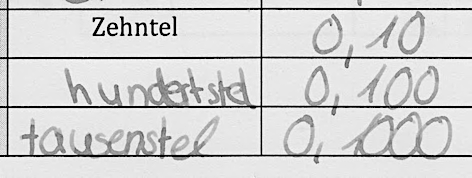 Zehntel 0,10
hundertstel 0,100
tausenstel 0,1000